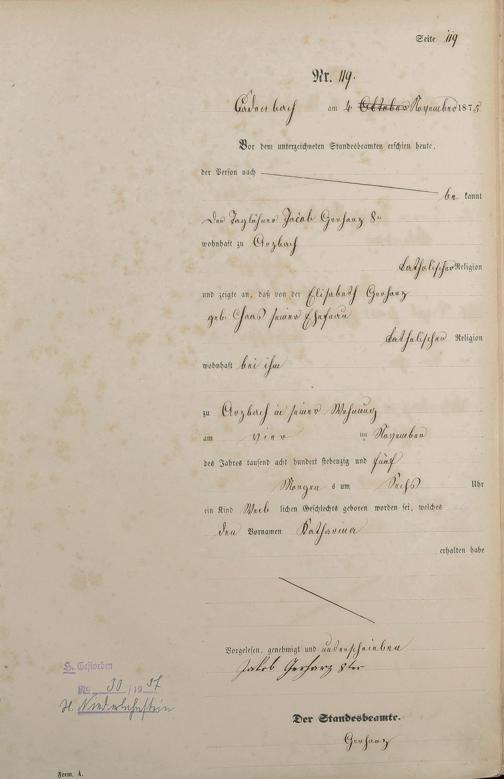 Seite 119
Nr. 119.
Cadenbach am 4 Oktober November 1875
Vor dem unterzeichneten Standesbeamten erschien heute,
der Person nach
be kannt
den Taglöhner Jacob Gerharz 8ter
wohnhaft zu Arzbach
katholischer Religion
und zeigte an, daß von der Elisabeth Gerharz
geb. Haas seiner Ehefrau
katholischer Religion
wohnhaft bei ihm
zu Arzbach in seiner Wohnung
am vier im November
des Jahres tausend acht hundert siebenzig und fünf
Morgen s um Sechs Uhr
ein Kind Weib lichen Geschlechts geboren worden sei, welches
den Vornamen Katharina
erhalten habe
Vorgelesen, genehmigt und unterschrieben
Jakob Gerharz 8ter
H. Gestorben
Nr. 30 /19 57
St. Niederlahnstein
Der Standesbeamte.
Gerharz
Form. A.